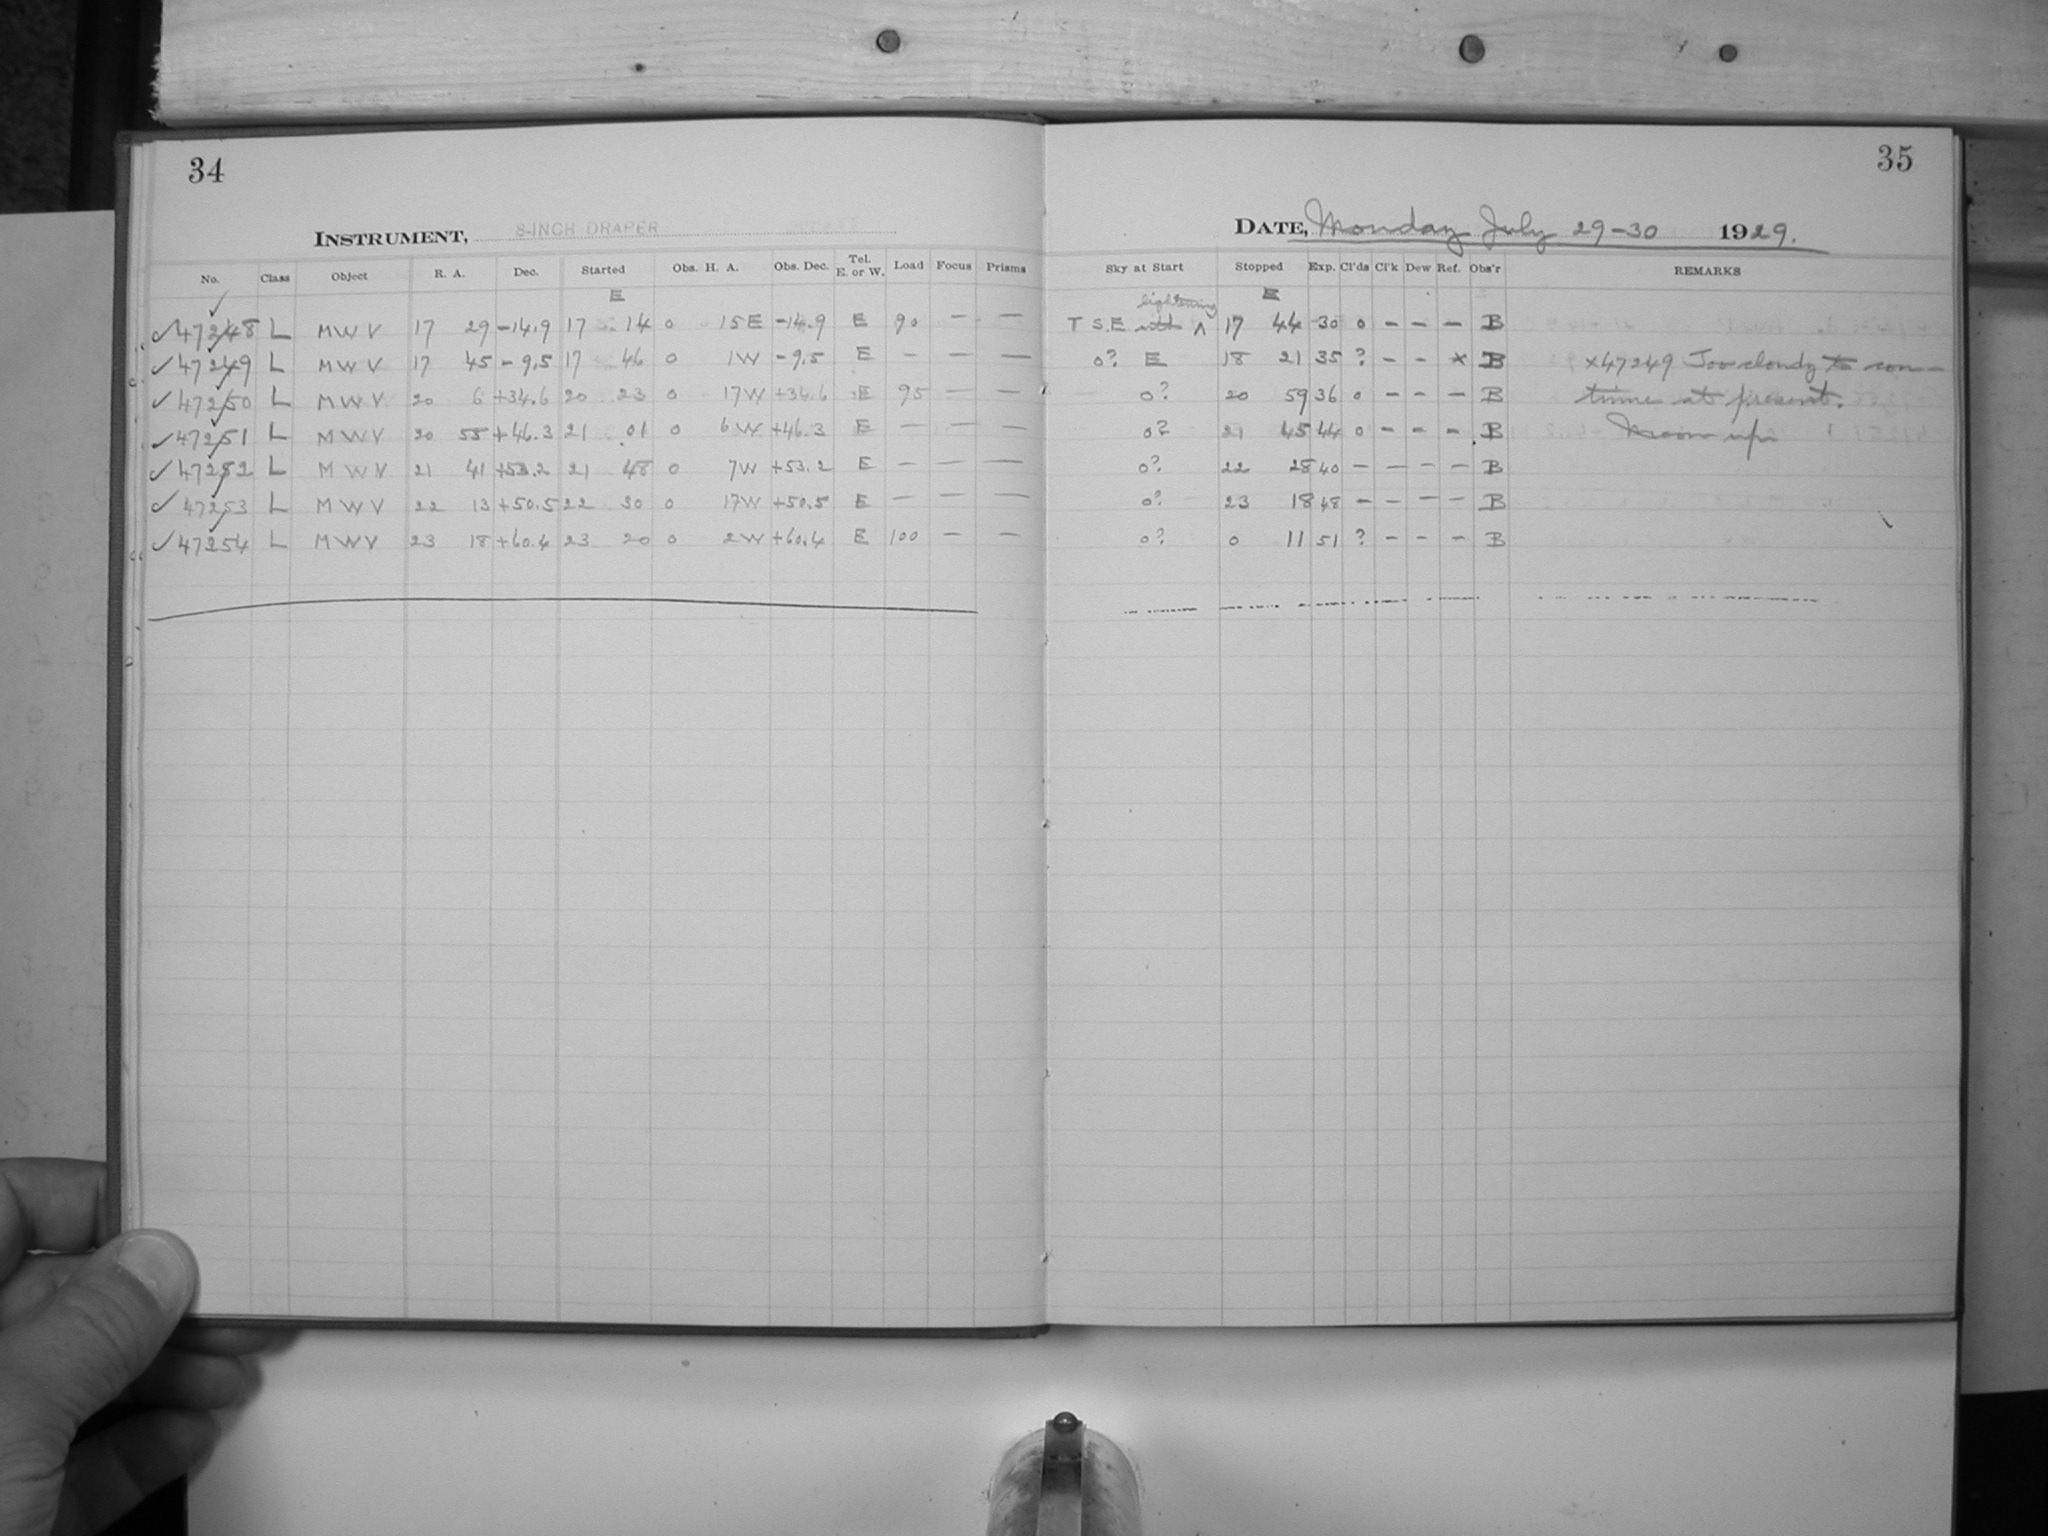 34
INSTRUMENT, 8-INCH DRAPER
No. Class Object R. A. Dec. Started Obs. H. A. Obs. Dec. Tel. E. or W. Load Focus Prisms
E
✓47248 L M W V 17 29 -14.9 17 14 0 15 E -14.9 E 90 — —
✓47249 L M W V 17 45 -9.5 17 46 0 1 W -9.5 E — — —
✓47250 L M W V 20 6 +34.6 20 23 0 17 W +34.6 E 95 — —
✓47251 L M W V 20 55 +46.3 21 01 0 6 W +46.3 E — — —
✓47252 L M W V 21 41 +53.2 21 48 0 7 W +53.2 E — — —
✓47253 L M W V 22 13 +50.5 22 30 0 17 W +50.5 E — — —
✓47254 L M W V 23 18 +60.4 23 20 0 2 W +60.4 E 100 — —
35
DATE, Monday July 29-30 1929.
Sky at Start Stopped Exp. Cl'ds Cl'k Dew Ref. Obs'r REMARKS
lightening E
T S.E. with ʌ 17 44 30 0 — — — B
0? E 18 21 35 ? — — x B x47249 Too cloudy to con-
0? 20 59 36 0 — — — B tinue at present.
0? 21 45 44 0 — — — B Moon up
0? 22 28 40 — — — — B
0? 23 18 48 — — — — B
0? 0 11 51 ? — — — B